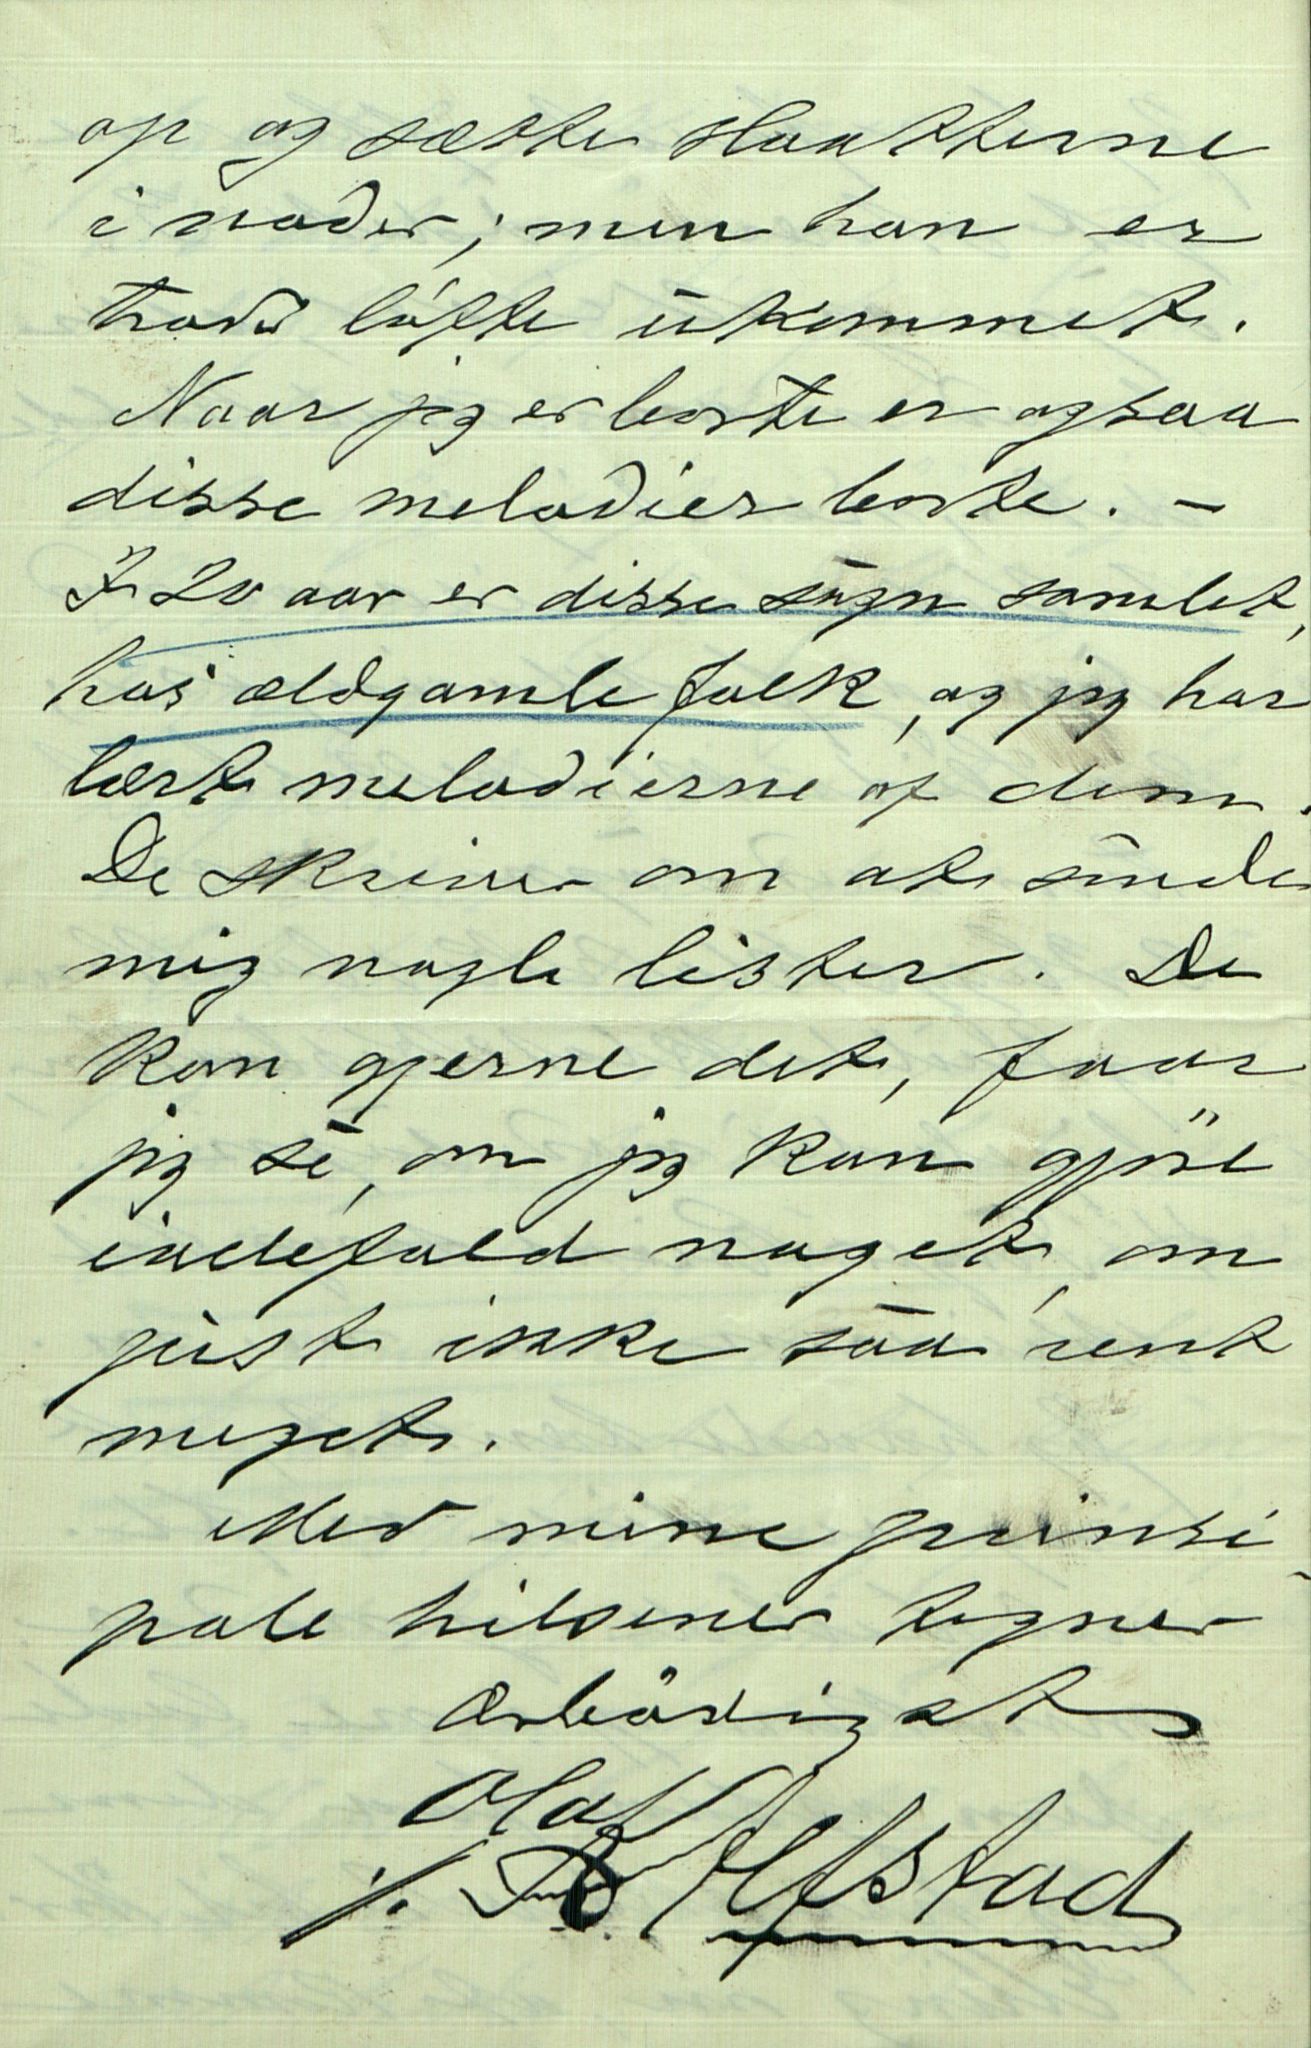 op og sætte slaatterne
i noder; men han er
trods löfte ukommet.
Naar jeg er borte er ogsaa
disse melodier borte. –
I 20 aar er disse sagn samlet,
hos ældgamle folk, og jeg har
lært melodierne af dem.
De skriver om at sende
mig nogle lister. De
kan gjerne det, faar
jeg se, om jeg kan gjöre
iadefald noget, om
just ikke saa rent
meget.
Med mine prinsi-
pale hilsener tegner
Ærbödigst
Olaf
Alfstad